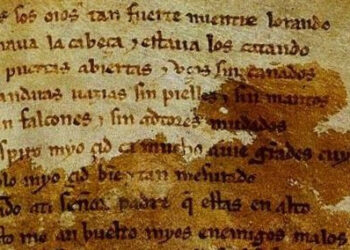 los sos oios tan fuerte mientre lorando
naua la cabeça ⁊ estaua los catando
puertas abiertas ⁊ vços sin cañados
andaras uazias sin pielles ⁊ sin mantos
n falcones ⁊ sin adtores mudados
spiro myo çid ca mucho auie grãdes cuy
blo myo çid bien ⁊ tan mesurado
ado ati señor padre q̃ estas en alto
to me an buelto myos enemigos malos